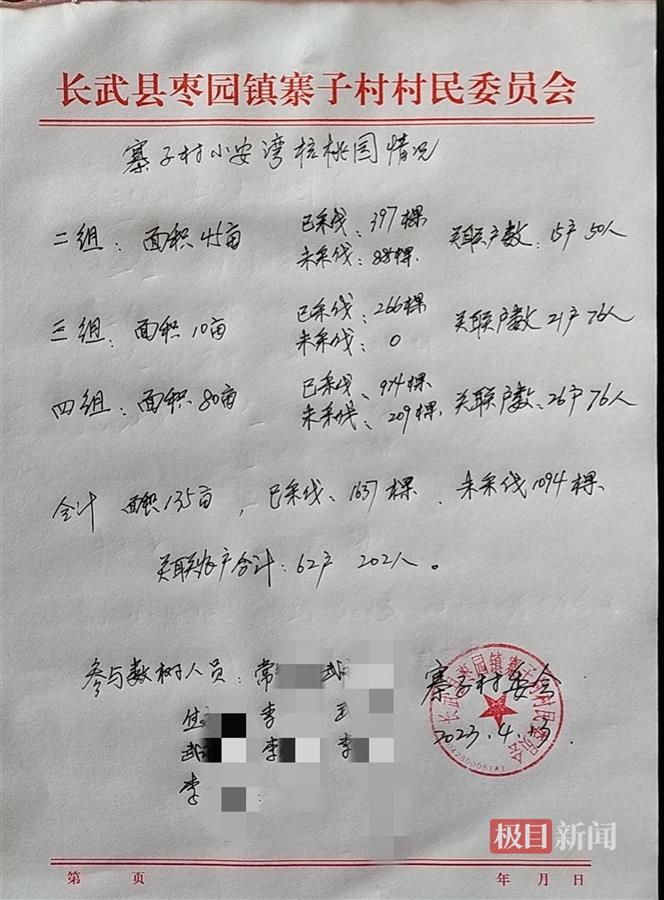 长武县枣园镇寨子村村民委员会
寨子村小安湾核桃园情况
二组：面积45亩 已采伐：397棵 关联户数：15户 50人
未采伐：885棵
三组：面积10亩 已采伐：266棵 关联户数 21户 76人
未采伐：0
四组：面积80亩 已采伐：974棵 关联户数：26户76人
未采伐：209棵
合计 面积135亩，已采伐：1637棵、未采伐1094棵
关联农户合计：62户 202人。
参与数树人员：常 武
李 王
武 李 李
李
寨子村委会
2023.4.13
长武县枣园镇寨子村村民委员会
极目新闻
第 页 年 月 日